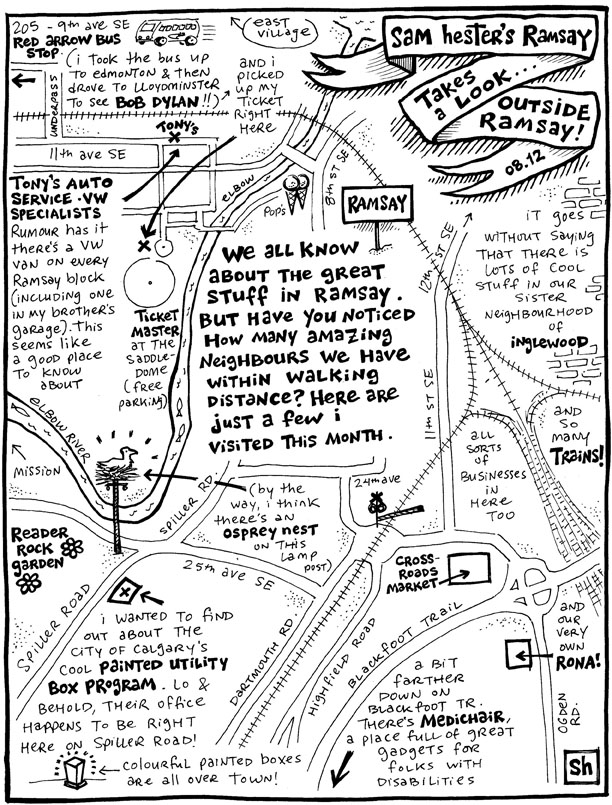 Sam hester's Ramsay
Takes
a Look...
OUTSIDE
RAMSAY!
08.12
205 - 9th ave SE
RED ARROW BUS
STOP
(i took the bus up
to edmonton & then
drove to LLOYDMINSTER
to see BOB DYLAN!!)
east
village
AND i
picked
up my
Ticket
right
here
underpass
Tony's
11th ave SE
Tony's Auto
Service · VW
specialists
Rumour has it
there's a VW
van on every
Ramsay block
(including one
in my brother's
garage). This
seems like
a good place
to know
about
Ticket
master
AT THE
SADDLE-
DOME
(free
parking)
elbow
Pop's
8th ST SE
RAMSAY
12th ST SE
We all know
about the great
stuff in Ramsay.
But have you noticed
how many amazing
neighbours we have
within walking
distance? Here are
just a few i
visited this month.
11th ST SE
iT goes
without saying
that there is
lots of cool
stuff in our
sister
neighbourhood
of
inglewood
AND
so
many
Trains!
all
sorts
of
Businesses
in
here
too
elbow River
Mission
Reader
Rock
Garden
Spiller RD
(by the
way, i think
there's an
osprey nest
on this
lamp
post)
24th ave
25th ave SE
Spiller Road
Cross-
roads
Market
i wanted to find
out about the
City of Calgary's
cool painted utility
box program. Lo &
behold, their office
happens to be right
here on Spiller Road!
colourful painted boxes
are all over town!
Dartmouth RD
Highfield Road
Blackfoot Trail
a bit
farther
down on
Blackfoot Tr.
there's Medichair,
a place full of great
gadgets for
folks with
disabilities
AND
our
very
own
RONA!
Ogden
RD.
Sh